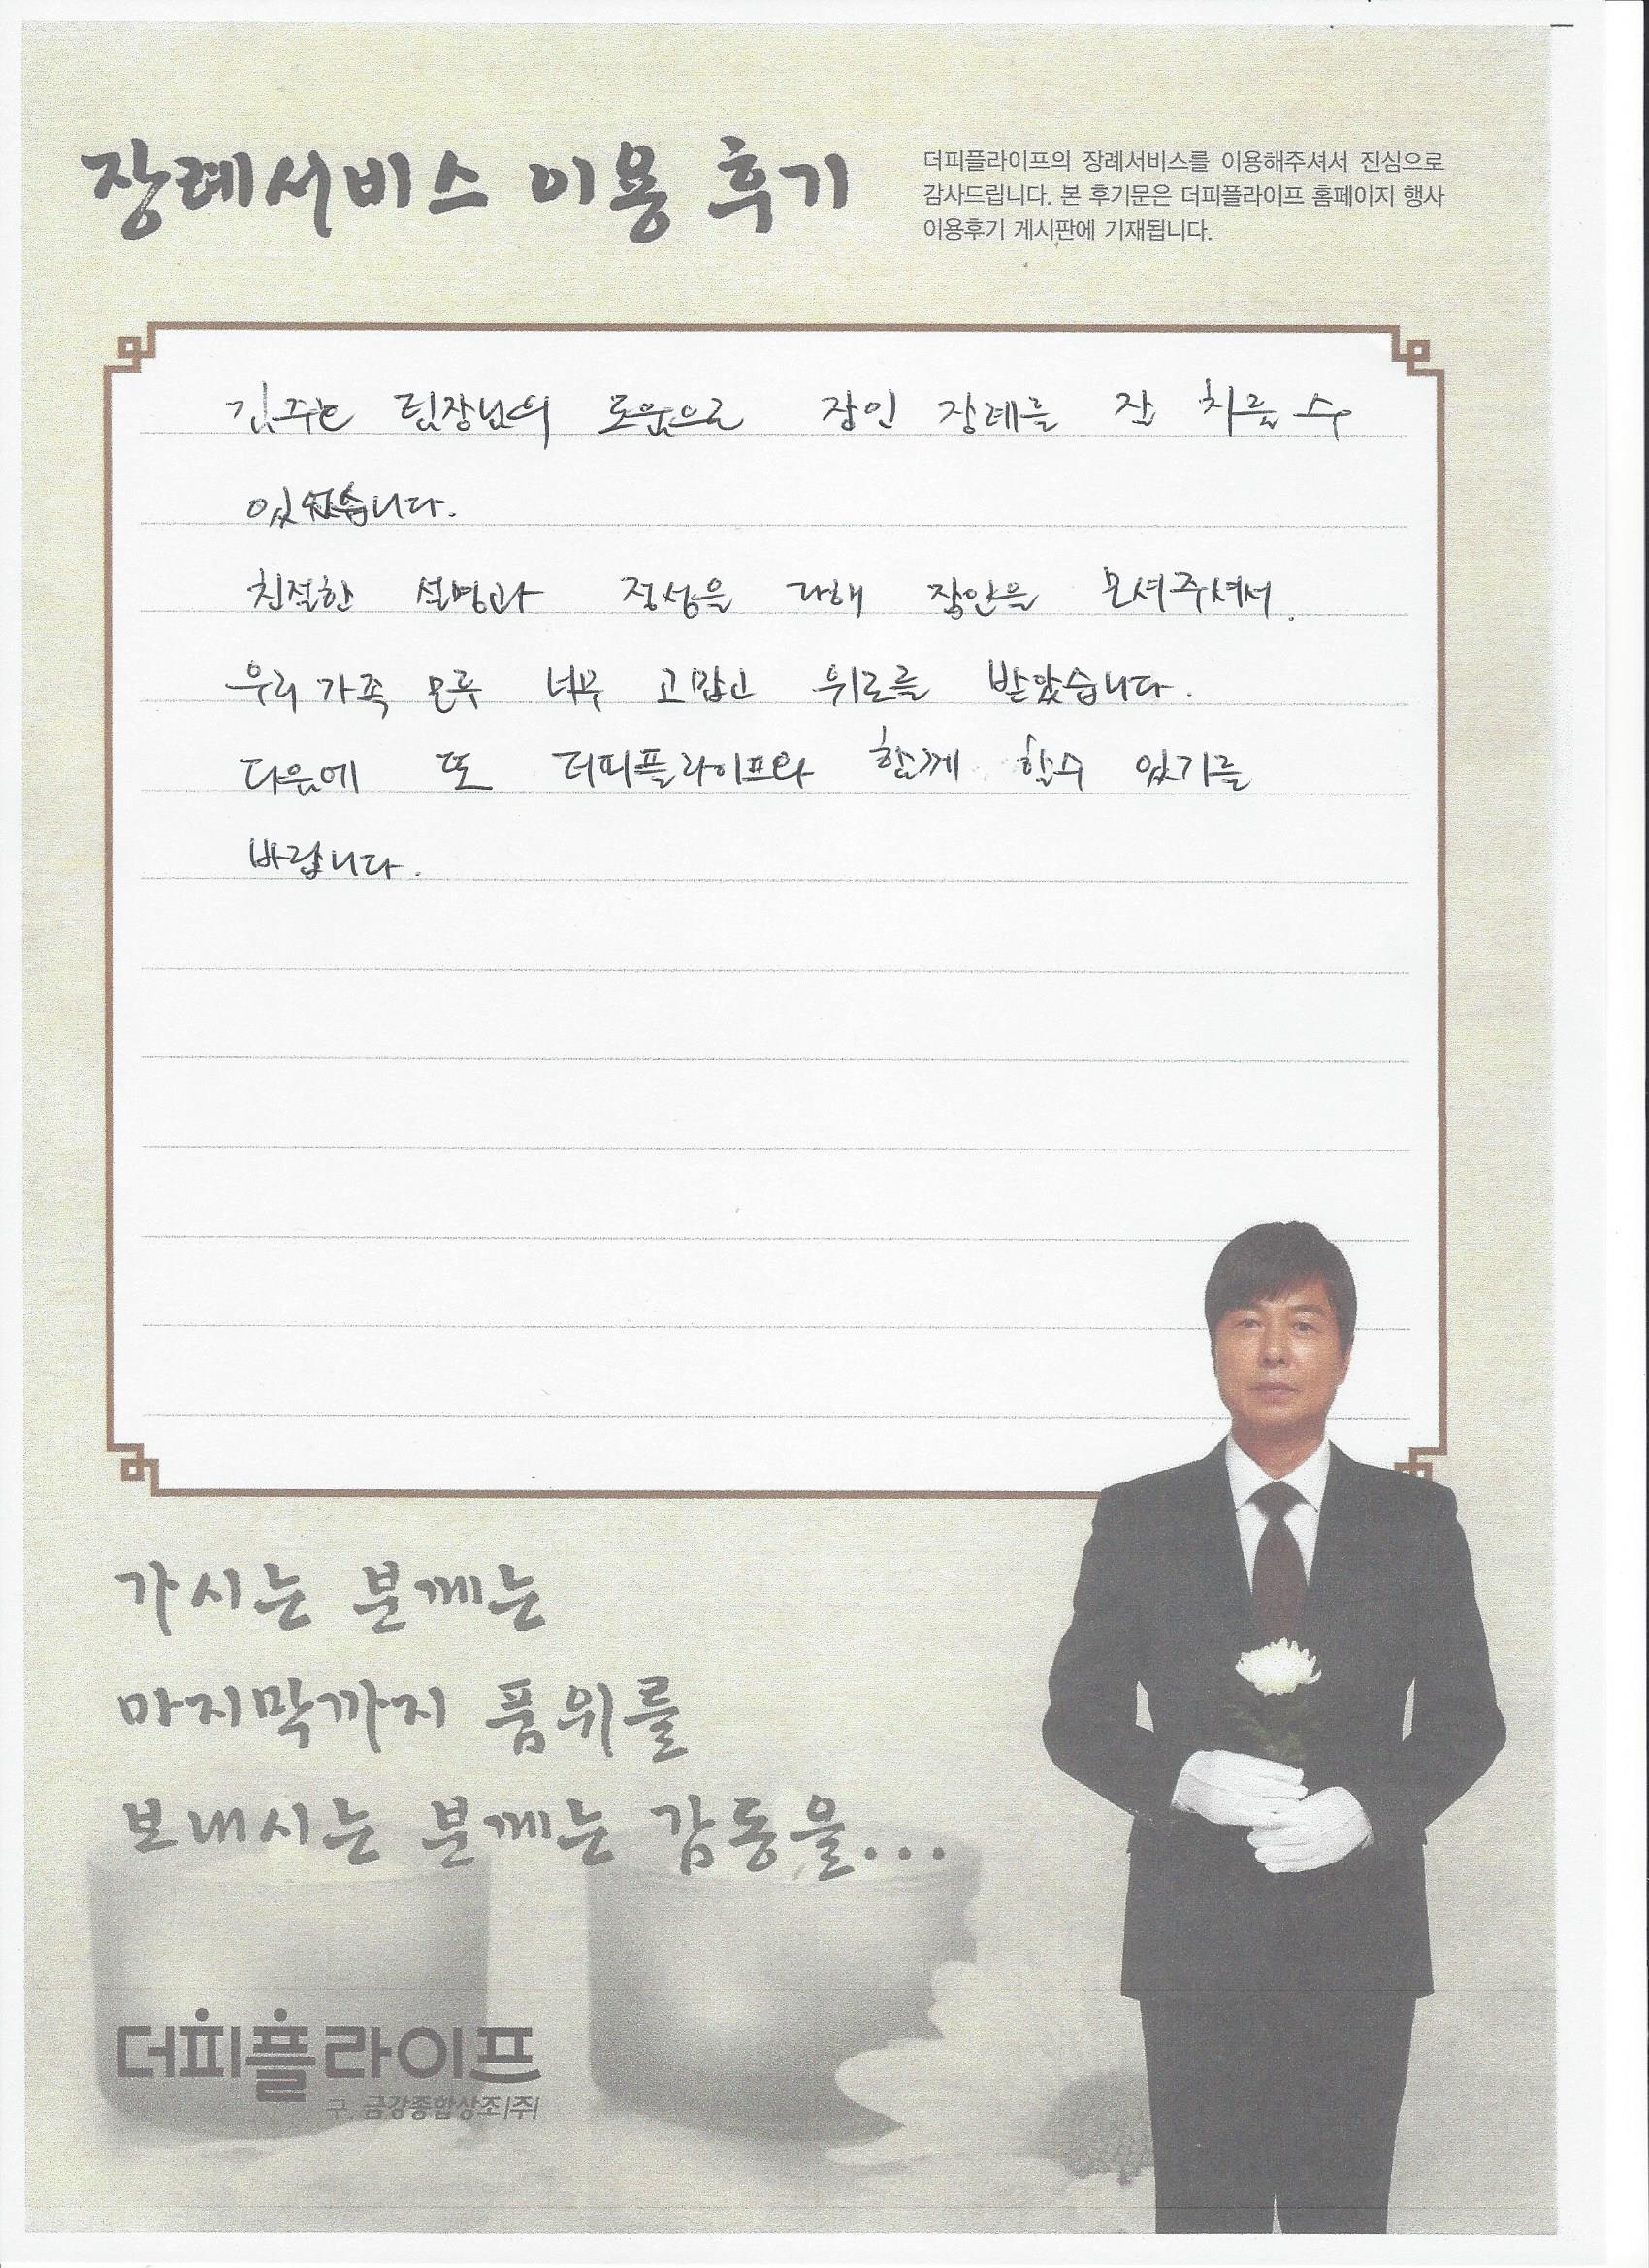 장례서비스 이용 후기
더피플라이프의 장례서비스를 이용해주셔서 진심으로
감사드립니다. 본 후기문은 더피플라이프 홈페이지 행사
이용후기 게시판에 기재됩니다.
팀장님의 도움으로 장인 장례를 잘 치를 수
있었습니다.
친절한 설명과 정성을 다해 장인을 모셔주셔서.
우리 가족 모두 너무 고맙고 위로를 받았습니다.
다음에 또 더피플라이프와 함께 할수 있기를
바랍니다.
가시는 분께는
마지막까지 품위를
보내시는 분께는 감동을...
더피플라이프
구. 금강종합상조(주)